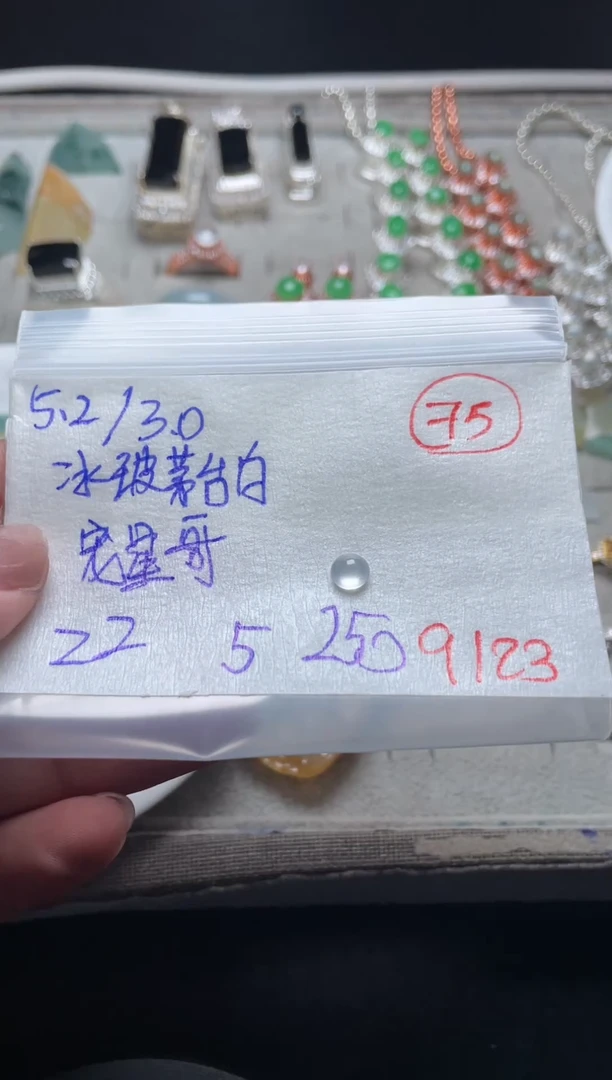 5.2/3.0
75
冰玻茅台白
宠星哥
22 5 250 9123